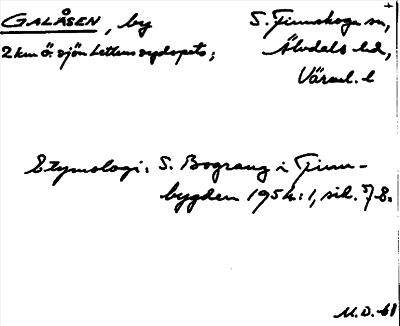 GALÅSEN, by
S. Finnskoga sn,
2 km ö. sjön Lettens sydspets;
Älvdals hd,
Värml. l
Etymologi: S. Bograng i Finn-
bygden 1954:1, sid. 7, 8.
M.O.-61